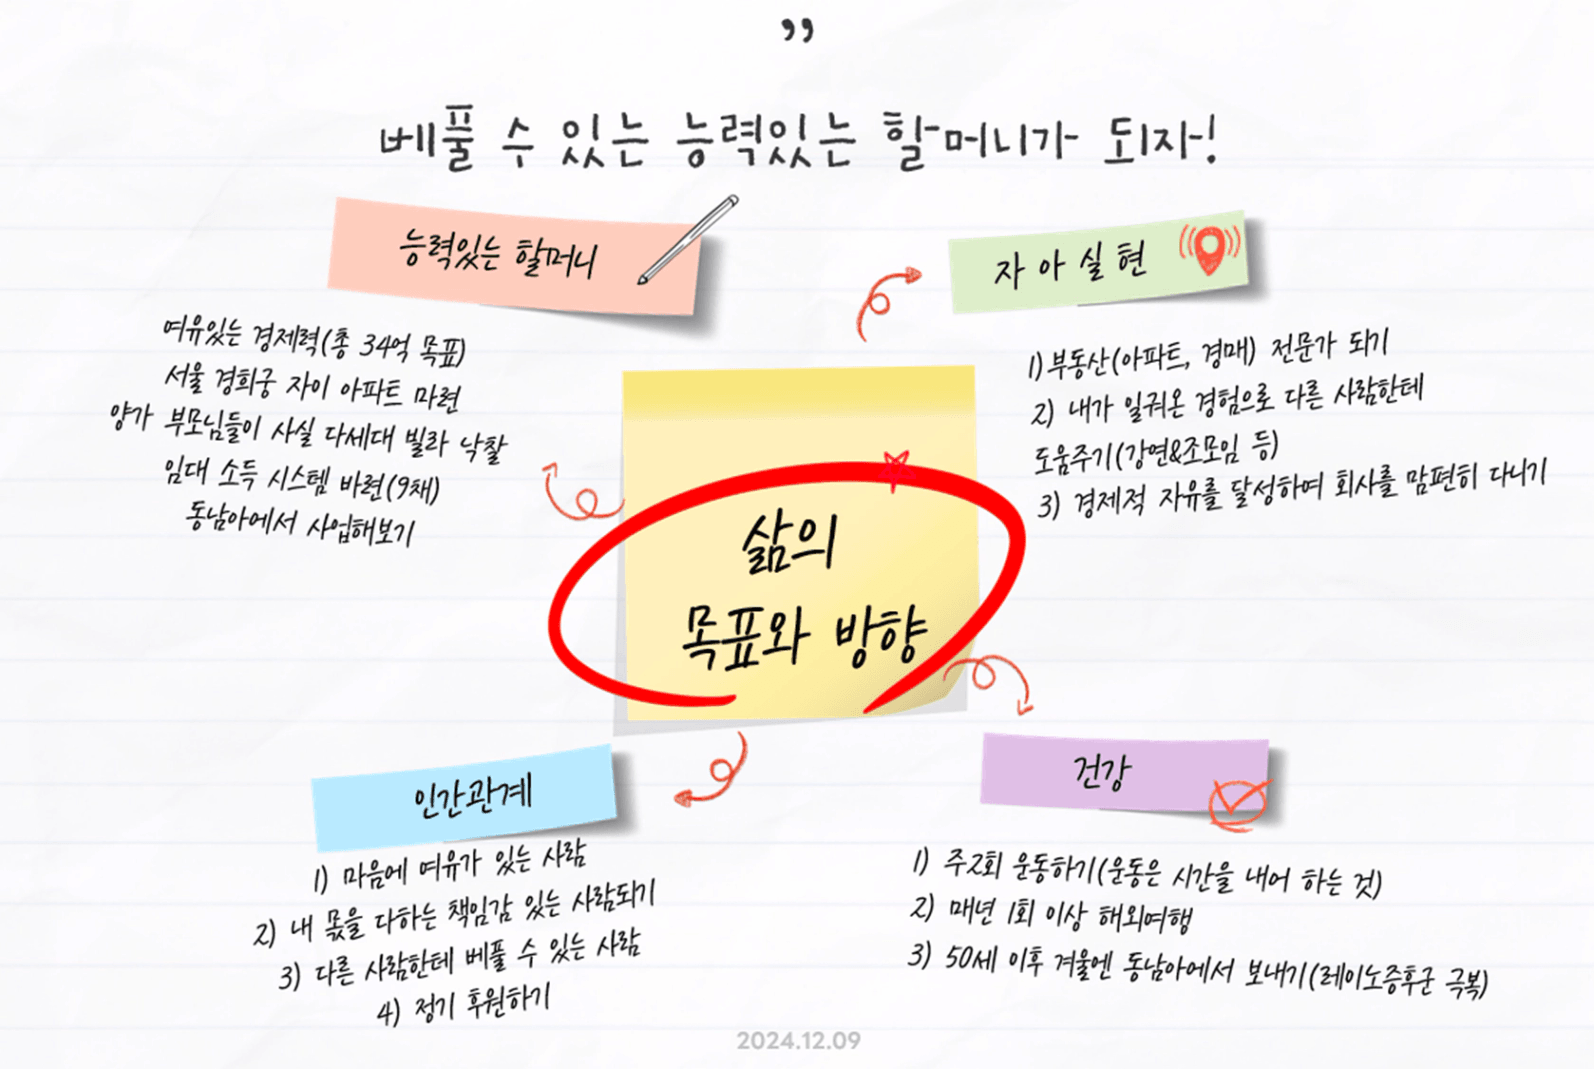 ”
베풀 수 있는 능력있는 할머니가 되자!
능력있는 할머니
여유있는 경제력(총 34억 목표)
서울 경희궁 자이 아파트 마련
양가 부모님들이 사실 다세대 빌라 낙찰
임대 소득 시스템 바련(9채)
동남아에서 사업해보기
자아실현
1)부동산(아파트, 경매) 전문가 되기
2) 내가 일궈온 경험으로 다른 사람한테
도움주기(강연&조모임 등)
3) 경제적 자유를 달성하여 회사를 맘편히 다니기
삶의
목표와 방향
인간관계
1) 마음에 여유가 있는 사람
2) 내 몫을 다하는 책임감 있는 사람되기
3) 다른 사람한테 베풀 수 있는 사람
4) 정기 후원하기
건강
1) 주2회 운동하기(운동은 시간을 내어 하는 것)
2) 매년 1회 이상 해외여행
3) 50세 이후 겨울엔 동남아에서 보내기(레이노증후군 극복)
2024.12.09